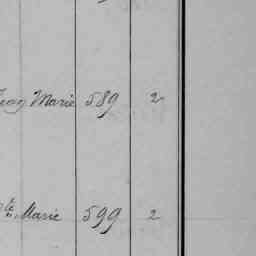 Marie 589 2
Marie 599 2